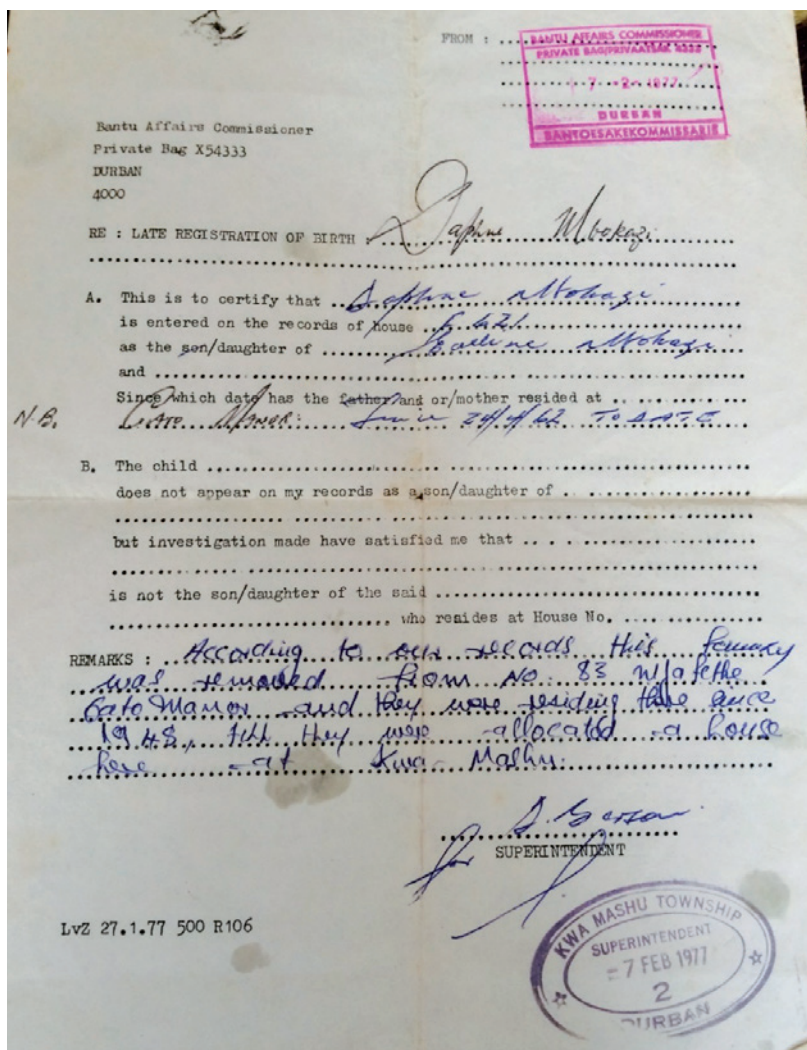 FROM :
BANTU AFFAIRS COMMISSIONER
PRIVATE BAG/PRIVAATSAK
7 -2- 1977
DURBAN
BANTOESAKEKOMMISSARIS
Bantu Affairs Commissioner
Private Bag X54333
DURBAN
4000
RE : LATE REGISTRATION OF BIRTH : Daphne Mbokazi
A. This is to certify that Daphne Mbokazi
is entered on the records of house
as the son/daughter of Mbokazi
and
Since which date has the father/and or/mother resided at
N.B. Cato Manor: TO DATE
B. The child
does not appear on my records as a son/daughter of
but investigation made have satisfied me that
is not the son/daughter of the said
who resides at House No.
REMARKS : According to our records this family
was removed from No. 83
Cato Manor and they were residing there since
1948, till they were allocated a house
here at Kwa-Mashu.
for
SUPERINTENDENT
LvZ 27.1.77 500 R106
KWA MASHU TOWNSHIP
SUPERINTENDENT
7 FEB 1977
2
DURBAN